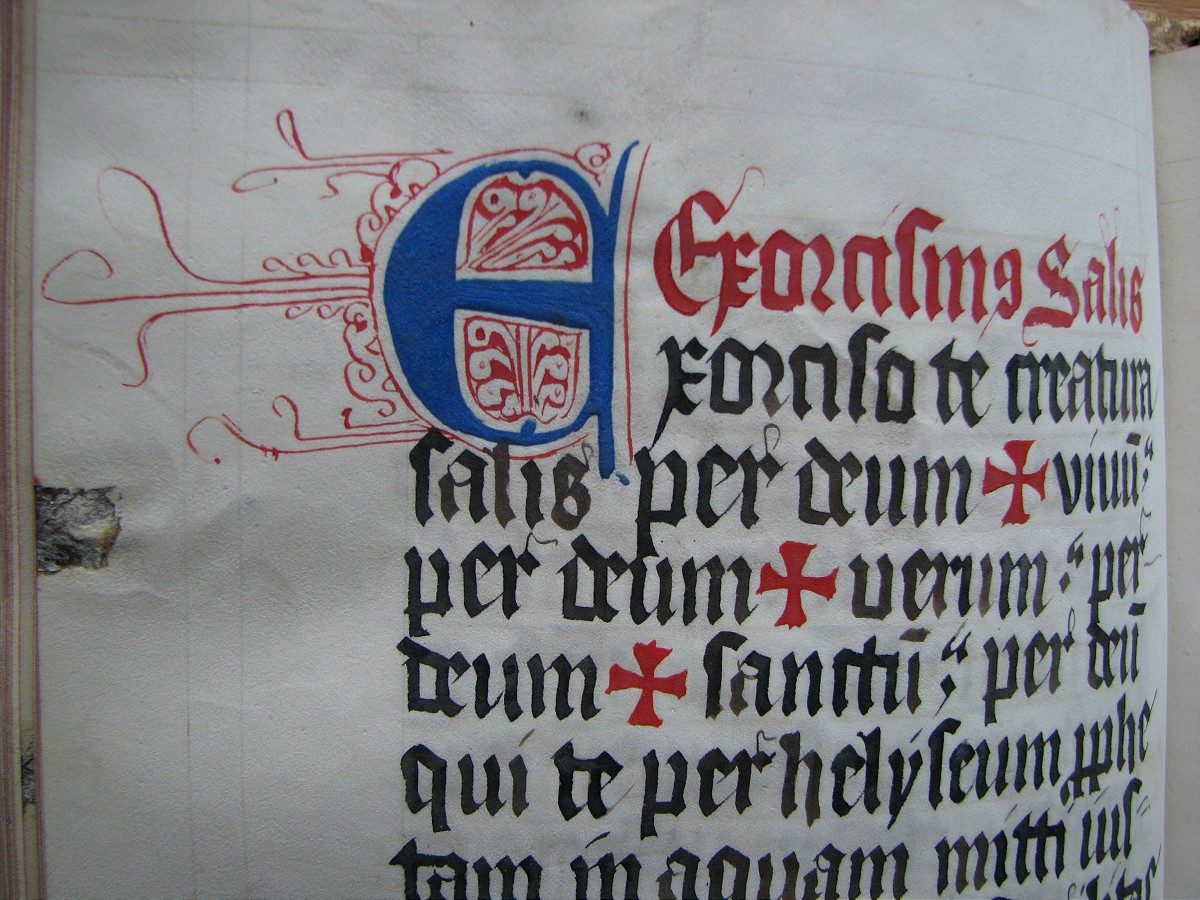 Exorcismꝰ Salis
Exorciso te creatura
salis per deum ✠ viuū;
per deum ✠ uerum; per
deum ✠ sanctū; per deū
qui te per helyseum ꝓphe
tam in aquam mitti ius-